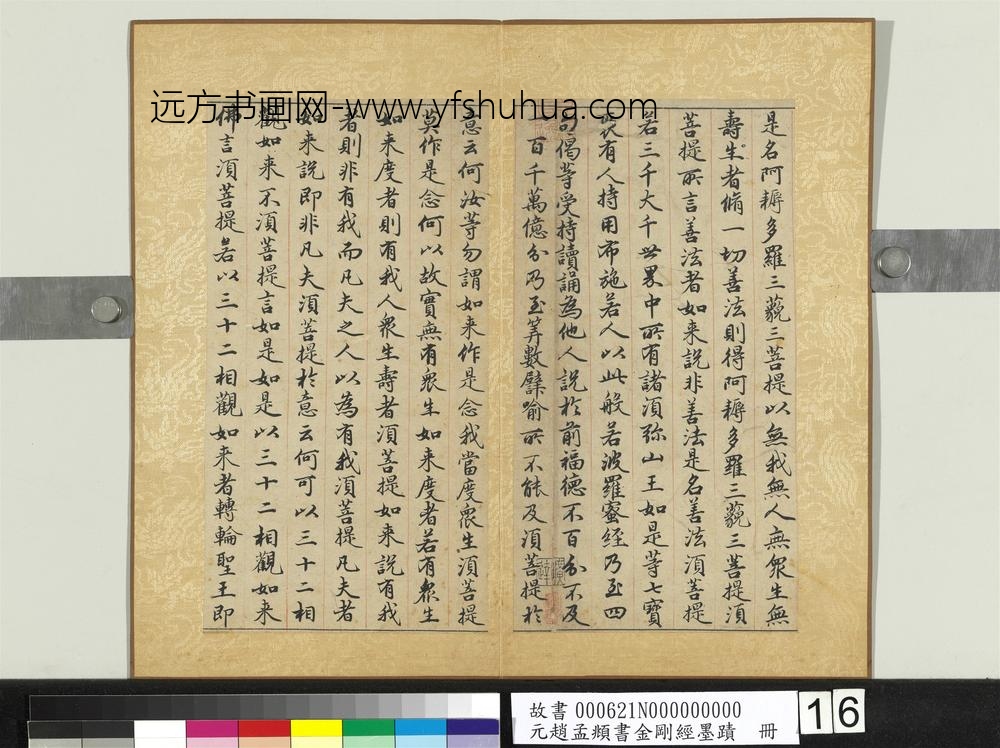 远方书画网-www.yfshuhua.com
是名阿耨多羅三藐三菩提以無我無人無眾生無
壽生者脩一切善法則得阿耨多羅三藐三菩提湏
菩提所言善法者如来說非善法是名善法湏菩提
若三千大千世界中所有諸湏弥山王如是等七寶
聚有人持用布施若人以此般若波羅蜜経乃至四
句偈等受持讀誦為他人說於前福德不百分不及
一百千萬億分乃至筭數譬喻所不能及湏菩提於
意云何汝等勿謂如来作是念我當度眾生湏菩提
莫作是念何以故實無有眾生如来度者若有眾生
如来度者則有我人眾生壽者湏菩提如来說有我
者則非有我而凡夫之人以為有我湏菩提凡夫者
如来說即非凡夫湏菩提於意云何可以三十二相
觀如来不湏菩提言如是如是以三十二相觀如来
佛言湏菩提若以三十二相觀如来者轉輪聖王即
故書 000621N000000000
元趙孟頫書金剛經墨蹟 冊
16